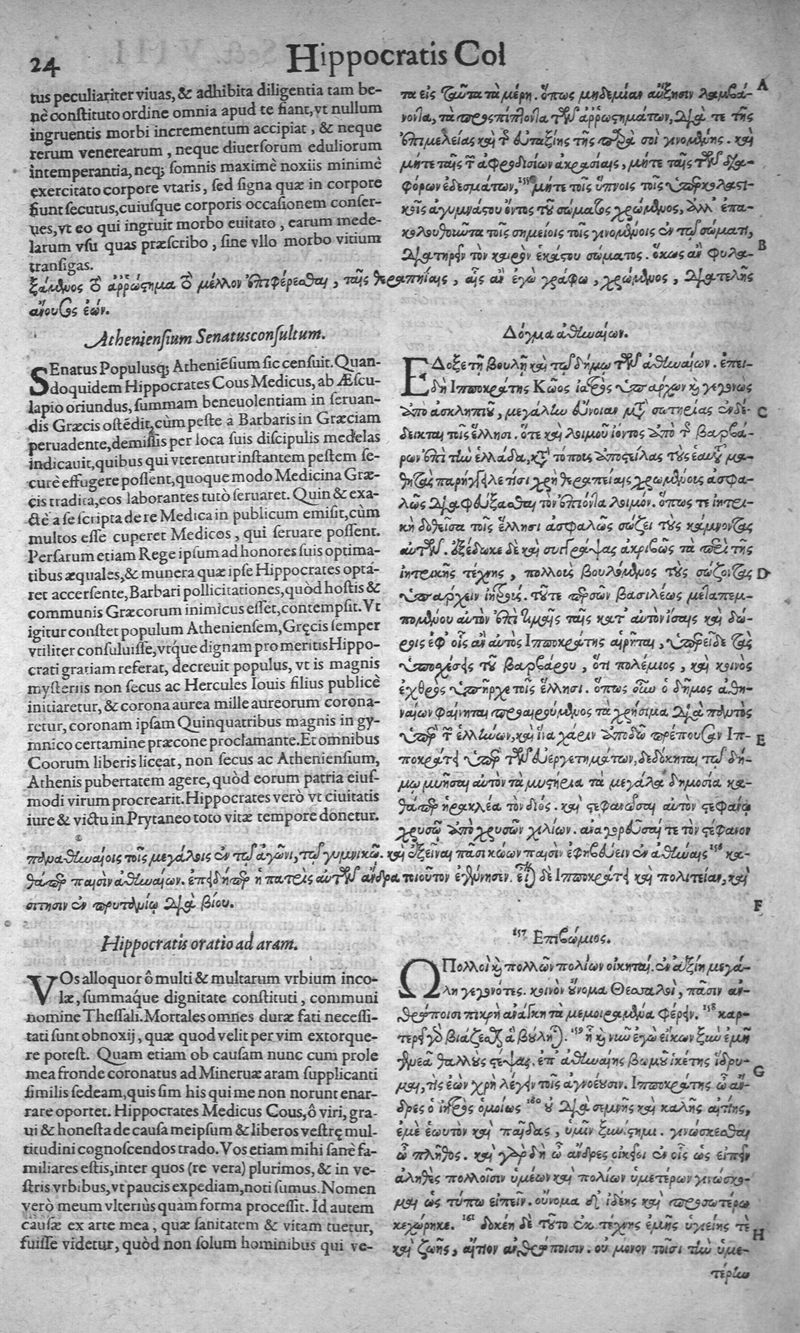 24
Hippocratis Col
tus peculiariter viuas, & adhibita diligentia tam be-
nè constituto ordine omnia apud te fiant, vt nullum
ingruentis morbi incrementum accipiat, & neque
rerum venerearum, neque diuersorum eduliorum
intemperantia, neq; somnis maximè noxiis minimè
exercitato corpore vtaris, sed signa quæ in corpore
fiunt secutus, cuiusque corporis occasionem conser-
ues, vt eo qui ingruit morbo euitato, earum mede-
larum vsu quas præscribo, sine vllo morbo vitium
transigas.
τα εἰς ταῦτα τὰ μέρη. ὅπως μηδεμίαν αὔξησιν λαμβά-
νοντα, τὰ προσπίπτοντα τῶν ἀῤῥωστημάτων, διά τε τῆς
ἐπιμελείας καὶ τ εὐταξίης τῆς παρὰ σοὶ γινομένης. καὶ
μήτε ταῖς τ ἀφροδισίων ἀκρασίαις, μήτε ταῖς τῶν δια-
φόρων ἐδεσμάτων, μήτε τοῖς ὕπνοις τοῖς
ἀγυμνάστου ὄντος τοῦ σώματος χρώμενος, ἀλλ' ἐπα-
κολουθοῦντα τοῖς σημείοις τοῖς γινομένοις ἐν τῷ σώματι,
διατηρεῖν τὸν καιρὸν ἑκάστου σώματος. ὅκως ἂν φυλα-
A
B
ξάμενος τὸ ἀῤῥώστημα τὸ μέλλον ἐπιφέρεσθαι, ταῖς θεραπηίαις, αἷς ἂν ἐγὼ γράφω, χρώμενος, διατελῇς
ἄνουσος ἐών.
Atheniensium Senatusconsultum.
SEnatus Populusq; Atheniẽsium sic censuit. Quan-
doquidem Hippocrates Cous Medicus, ab Æscu-
lapio oriundus, summam beneuolentiam in seruan-
dis Græcis ostẽdit, cùm peste à Barbaris in Græciam
peruadente, demissis per loca suis discipulis medelas
indicauit, quibus qui vterentur instantem pestem se-
curè effugere possent, quoque modo Medicina Græ-
cis tradita, eos laborantes tutò seruaret. Quin & exa-
ctè a se scripta de re Medica in publicum emisit, cùm
multos esse cuperet Medicos, qui seruare possent.
Persarum etiam Rege ipsum ad honores suis optima-
tibus æquales, & munera quæ ipse Hippocrates opta-
ret accersente, Barbari pollicitationes, quòd hostis &
communis Græcorum inimicus esset, contempsit. Vt
igitur constet populum Atheniensem, Gręcis semper
vtiliter consuluisse, vtque dignam pro meritis Hippo-
crati gratiam referat, decreuit populus, vt is magnis
mysteriis non secus ac Hercules Iouis filius publicè
initiaretur, & corona aurea mille aureorum corona-
retur, coronam ipsam Quinquatribus magnis in gy-
mnico certamine præcone proclamante. Et omnibus
Coorum liberis liceat, non secus ac Atheniensium,
Athenis pubertatem agere, quòd eorum patria eius-
modi virum procrearit. Hippocrates verò vt ciuitatis
iure & victu in Prytaneo toto vitæ tempore donetur.
Δόγμα ἀθηναίων.
ΕΔοξε τῇ βουλῇ καὶ τῷ δήμῳ τῶν ἀθηναίων. ἐπει-
δὴ Ιπποκράτης Κῶος ἰατρὸς ὑπάρχων καὶ γεγονὼς
ἀπὸ ἀσκληπιοῦ, μεγάλην εὔνοιαν μετὰ σωτηρίας ἐνδέ-
δεικται τοῖς ἕλλησι. ὅτε καὶ λοιμοῦ ἰόντος ἀπὸ τ βαρβά-
ρων ἐπὶ τὴν ἑλλάδα, κατὰ τόπους ἀποστείλας τοὺς ἑαυτοῦ μα-
θητὰς παρήγγειλε τίσι χρὴ θεραπείαις χρωμένους ἀσφα-
λῶς διαφεύξασθαι τὸν ἐπιόντα λοιμόν. ὅπως τε ἰητρι-
κὴ δοθεῖσα τοῖς ἕλλησι ἀσφαλῶς σώζει τοὺς κάμνοντας
αὐτῶν. ἐξέδωκε δὲ καὶ συγγράψας ἀκριβῶς τὰ περὶ τῆς
ἰητρικῆς τέχνης, πολλοὺς βουλόμενος τοὺς σώζοντας
ὑπάρχειν ἰητρούς. τοῦτε περσῶν βασιλέως μεταπεμ-
πομένου αὐτὸν ἐπὶ τιμαῖς ταῖς κατ' αὐτὸν ἴσαις καὶ δώ-
ροις ἐφ' οἷς ἂν αὐτὸς Ιπποκράτης αἱρῆται, ὑπερεῖδε τὰς
ὑποσχέσεις τοῦ βαρβάρου, ὅτι πολέμιος, καὶ κοινὸς
ἐχθρὸς ὑπῆρχε τοῖς ἕλλησι. ὅπως οὖν ὁ δῆμος ἀθη-
ναίων φαίνηται προαιρούμενος τὰ χρήσιμα διὰ παντὸς
ὑπὲρ τ ἑλλήνων, καὶ ἵνα χάριν ἀποδῷ πρέπουσαν Ιπ-
ποκράτει ὑπὲρ τῶν εὐεργετημάτων, δεδόκηται τῷ δή-
μῳ μυῆσαι αὐτὸν τὰ μυστήρια τὰ μεγάλα δημοσίᾳ κα-
θάπερ ἡρακλέα τὸν διός. καὶ στεφανῶσαι αὐτὸν στεφάνῳ
χρυσῷ ἀπὸ χρυσῶν χιλίων. ἀναγορεῦσαί τε τὸν στέφανον
C
D
E
F
παναθηναίοις τοῖς μεγάλοις ἐν τῷ ἀγῶνι, τῷ γυμνικῷ. καὶ ἐξεῖναι πᾶσι κώων παισὶν ἐφηβεύειν ἐν ἀθήναις 156 κα-
θάπερ παισὶν ἀθηναίων. ἐπειδήπερ ἡ πατρὶς αὐτῶν ἄνδρα τοιοῦτον ἐγέννησεν. εἶναι δὲ Ιπποκράτει καὶ πολιτείαν, καὶ
σίτησιν ἐν πρυτανείῳ διὰ βίου.
Hippocratis oratio ad aram.
VOs alloquor ô multi & multarum vrbium inco-
læ, summaque dignitate constituti, communi
nomine Thessali. Mortales omnes duræ fati necessi-
tati sunt obnoxij, quæ quod velit per vim extorque-
re potest. Quam etiam ob causam nunc cum prole
mea fronde coronatus ad Mineruæ aram supplicanti
similis sedeam, quis sim his qui me non norunt enar-
rare oportet. Hippocrates Medicus Cous, ô viri, gra-
ui & honesta de causa meipsum & liberos vestrę mul-
titudini cognoscendos trado. Vos etiam mihi sanè fa-
miliares estis, inter quos (re vera) plurimos, & in ve-
stris vrbibus, vt paucis expediam, noti sumus. Nomen
verò meum vlteriùs quam forma processit. Id autem
causæ ex arte mea, quæ sanitatem & vitam tuetur,
fuisse videtur, quòd non solum hominibus qui ve-
157 Επιβώμιος.
Ω Πολλοὶ καὶ πολλῶν πολίων οἰκηταί. ἐν ἀξίῃ μεγά-
λῃ γεγονότες. κοινὸν οὔνομα Θεσσαλοὶ, πᾶσιν ἀν-
θρώποισι πικρὴ ἀνάγκη τὰ μεμοιραμένα φέρειν. 158 καρ-
τερεῖ βιάζεσθαι ἃ βούλη. 159 ᾗ καὶ νῦν ἐγὼ εἴκων ξὺν ἐμῇ
γενεᾷ θαλλοὺς στέψας, ἐπ' ἀθηναίης βωμοῦ ἱκέτης ἵδρυ-
μαι, τίς ἐὼν χρὴ λέγειν τοῖς ἀγνοέυσιν. Ιπποκράτης ὦ ἄν-
δρες ὁ ἰητρὸς ὁμοίως 160 οὐ διὰ σεμνῆς καὶ καλῆς αἰτίης,
ἐμὲ ἑωυτὸν καὶ παῖδας, ὑμῖν ξυνίστημι. γινώσκεσθαι
ὦ πλῆθος. καὶ γὰρ δὴ ὦ ἄνδρες οἰκήϊοι ἐν οἷς ὡς εἰπεῖν
ἀληθὲς πολλοῖσιν ὑμέων καὶ πολίων ὑμετέρων γινώσκο-
μαι ὡς τύπῳ εἰπεῖν. οὔνομα δὲ ἰδέης καὶ προσωτέρω
κεχώρηκε. 161 δοκέῃ δὲ τοῦτο ἐκ τέχνης ἐμῆς ὑγιείης τε
καὶ ζωῆς, αἴτιον ἀνθρώποισιν. οὐ μόνον τοῖσι τὴν ὑμε-
G
H
τέρην